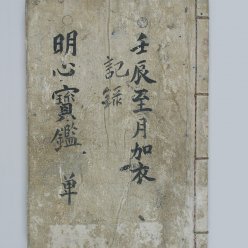 壬辰至月加衣
記錄
明心寶鑑 單